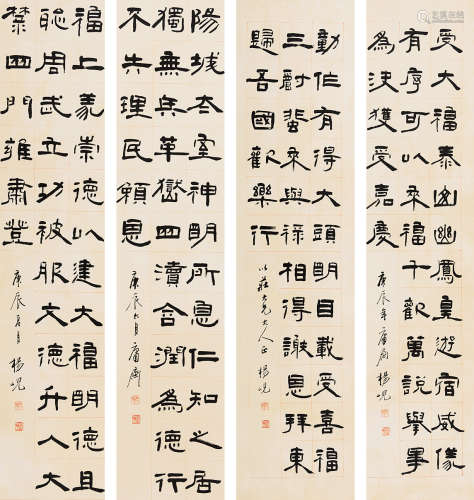 受大福泰山幽鳳皇遊宿威儀
有序可以來福千歡萬說舉事
為決獲受嘉慶
庚辰年庸齋楊峴
動作有得大頭明目載受喜福
三蜚來與祿相得謝恩拜東
歸吾國歡樂行
以莊大兄大人正 楊峴
陽城太室神明所息仁知之居
獨無兵革嶽四瀆合潤為德行
不失理民賴恩
庚辰六月庸齋
福上義崇德以建大福明德且
聡周武立功被服文德升入大
禁四門雍肅登
庚辰六月楊峴